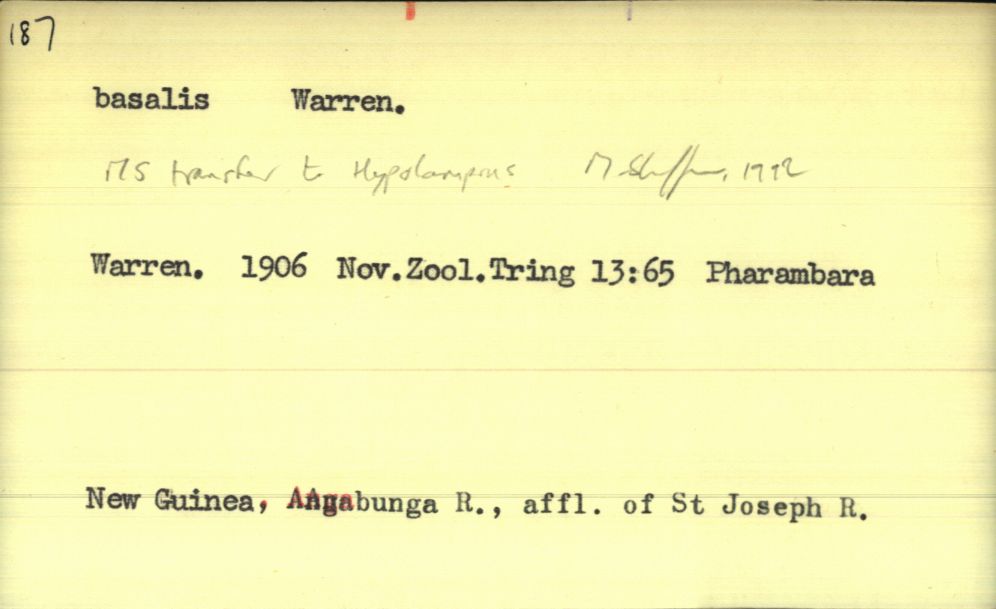 187
basalis Warren.
MS transfer to Hypolamprus M. Shaffer, 1992
Warren. 1906 Nov.Zool.Tring 13:65 Pharambara
New Guinea, Angabunga R., affl. of St Joseph R.